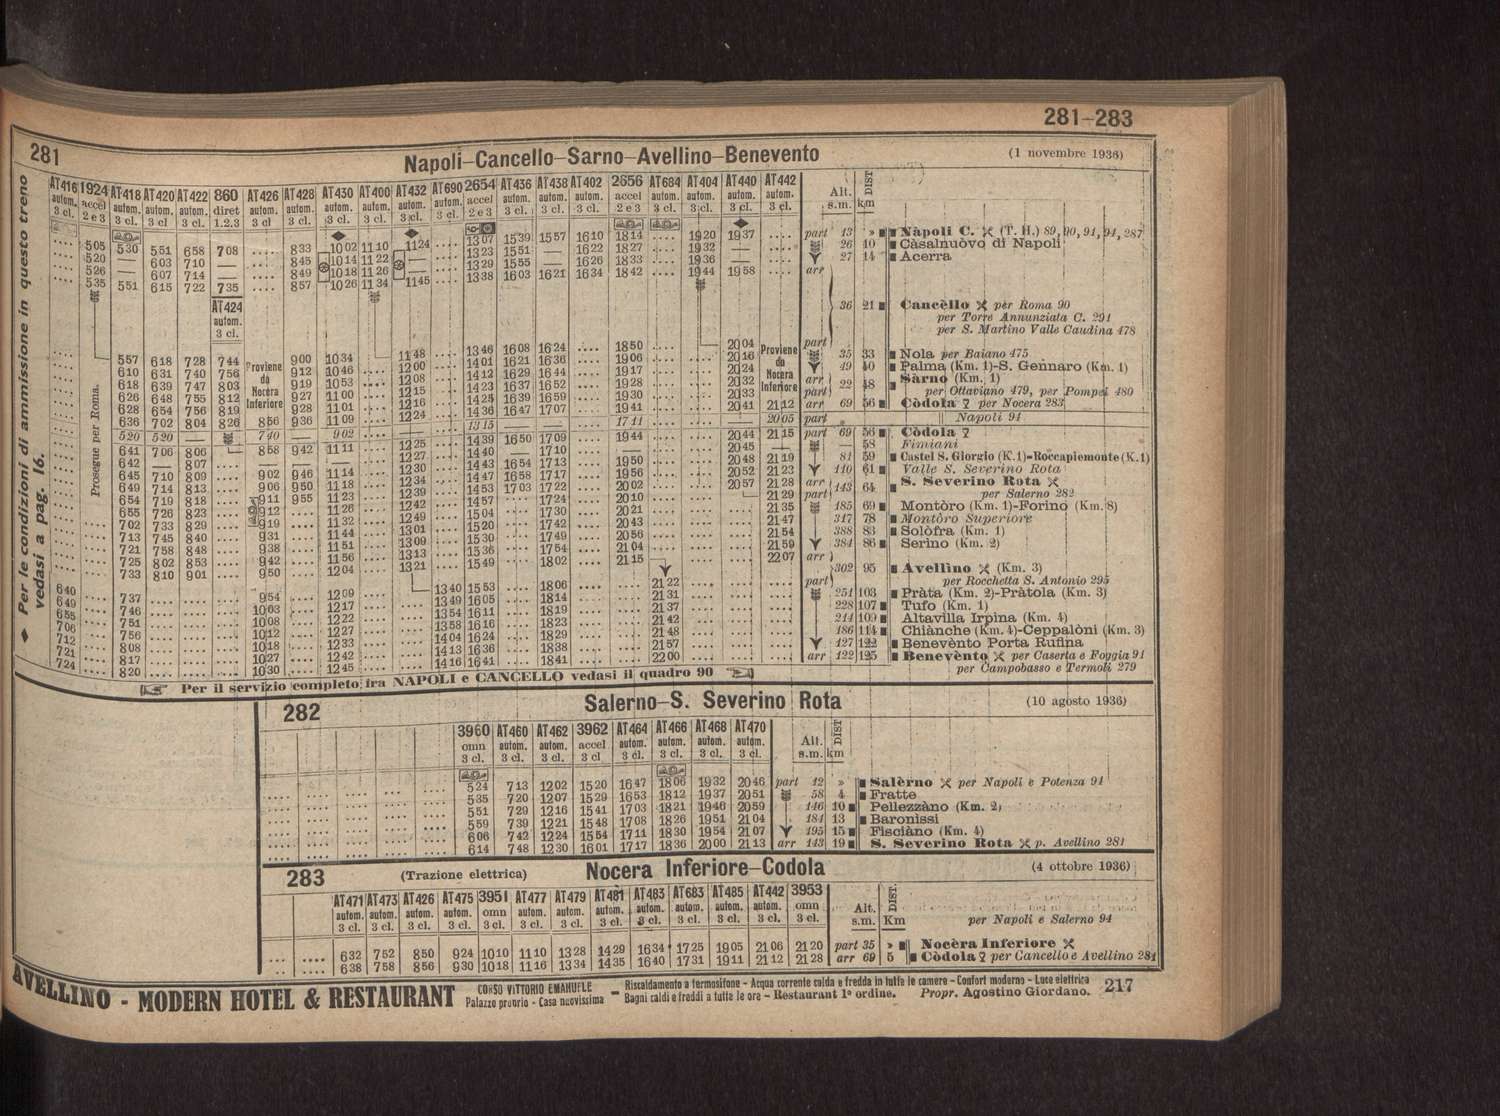 281-283
281
Napoli-Cancello-Sarno-Avellino-Benevento
(1 novembre 1936)
♦ Per le condizioni di ammissione in questo treno
vedasi a pag. 16.
AT416 1924 AT418 AT420 AT422 860 AT426 AT428 AT430 AT400 AT432 AT690 2654 AT436 AT438 AT402 2656 AT684 AT404 AT440 AT442
autom. accel autom. autom. autom. diret autom. autom. autom. autom. autom. autom. accel autom. autom. autom. accel autom. autom. autom. autom. Alt. DIST
3 cl. 2 e 3 3 cl. 3 cl 3 cl. 1.2.3 3 cl 3 cl. 3 cl. 3 cl. 3 cl. 3 cl. 2 e 3 3 cl. 3 cl. 3 cl. 2 e 3 3 cl. 3 cl. 3 cl. 3 cl. s.m. km
.... 505 530 551 658 708 .... 833 1002 1110 1124 .... 1307 1539 1557 1610 1814 .... 1920 1937 .... part 13 » Nàpoli C. (T. H.) 89, 90, 91, 94, 287
.... 520 — 603 710 — .... 845 1014 1122 — .... 1323 1551 — 1622 1827 .... 1932 — .... 26 10 Càsalnuòvo di Napoli
.... 526 — 607 714 — .... 849 1018 1126 — .... 1329 1555 — 1626 1833 .... 1936 — .... 27 14 Acerra
.... 535 551 615 722 735 .... 857 1026 1134 1145 .... 1338 1603 1621 1634 1842 .... 1944 1958 .... arr
AT424
autom.
3 cl.
36 21 Cancèllo per Roma 90
per Torre Annunziata C. 291
per S. Martino Valle Caudina 478
Prosegue per Roma.
Proviene da Nocera Inferiore
Proviene da Nocera Inferiore
557 618 728 744 900 1034 1148 1346 1608 1624 1850 2004 part
610 631 740 756 912 1046 1200 1401 1621 1636 1906 2016 35 33 Nola per Baiano 475
618 639 747 803 919 1053 1208 1412 1629 1644 1917 2024 49 40 Palma (Km. 1)-S. Gennaro (Km. 1)
626 648 755 812 927 1100 1215 1423 1637 1652 1928 2032 arr 22 48 Sàrno (Km. 1)
628 654 756 819 928 1101 1216 1425 1639 1659 1930 2033 part per Ottaviano 479, per Pompei 480
636 702 804 826 856 936 1109 1224 1436 1647 1707 1941 2041 2112 arr 69 56 Còdola per Nocera 283
520 520 — 740 — 902 — 1315 — — 1711 — 2005 part Napoli 94
641 706 806 858 942 1111 1225 1439 1650 1709 1944 2044 2115 part 69 56 Còdola
642 — 807 — — — 1227 — — 1710 — 2045 — 58 Fimiani
645 710 809 902 946 1114 1230 1443 1654 1713 1950 2048 2119 81 59 Castel S. Giorgio (K.1)-Roccapiemonte (K.1)
649 714 813 906 950 1118 1234 1447 1658 1717 1956 2052 2123 110 61 Valle S. Severino Rota
654 719 818 911 955 1123 1239 1453 1703 1722 2002 2057 2128 arr 143 64 S. Severino Rota
655 726 823 912 1126 1242 1457 1724 2010 2129 part per Salerno 282
702 733 829 919 1132 1249 1504 1730 2021 2135 185 69 Montòro (Km. 1)-Forino (Km. 8)
713 745 840 931 1144 1301 1520 1742 2043 2147 317 78 Montòro Superiore
721 758 848 938 1151 1309 1530 1749 2056 2154 388 83 Solòfra (Km. 1)
725 802 853 942 1156 1313 1536 1754 2104 2159 384 86 Serino (Km. 2)
733 810 901 950 1204 1321 1549 1802 2115 2207 arr 302 95 Avellìno (Km. 3)
640 737 954 1209 1340 1553 1806 2122 part per Rocchetta S. Antonio 295
649 746 1003 1217 1349 1605 1814 2131 251 103 Pràta (Km. 2)-Pràtola (Km. 3)
655 751 1008 1222 1354 1611 1819 2137 228 107 Tufo (Km. 1)
706 756 1012 1227 1358 1616 1823 2142 214 109 Altavilla Irpina (Km. 4)
712 808 1018 1233 1404 1624 1829 2148 186 114 Chiànche (Km. 4)-Ceppalòni (Km. 3)
721 817 1027 1242 1413 1636 1838 2157 127 122 Benevènto Porta Rufina
724 820 1030 1245 1416 1641 1841 2200 arr 122 125 Benevènto per Caserta e Foggia 91
per Campobasso e Termoli 279
Per il servizio completo fra NAPOLI e CANCELLO vedasi il quadro 90
282
Salerno-S. Severino Rota
(10 agosto 1936)
3960 AT460 AT462 3962 AT464 AT466 AT468 AT470
omn autom. autom. accel autom. autom. autom. autom. Alt. DIST
3 cl. 3 cl. 3 cl. 3 cl 3 cl. 3 cl. 3 cl. 3 cl. s.m. km
524 713 1202 1520 1647 1806 1932 2046 part 12 » Salèrno per Napoli e Potenza 94
535 720 1207 1529 1653 1812 1937 2051 58 4 Fratte
551 729 1216 1541 1703 1821 1946 2059 146 10 Pellezzàno (Km. 2)
559 739 1221 1548 1708 1826 1951 2104 184 13 Baronissi
606 742 1224 1554 1711 1830 1954 2107 195 15 Fisciàno (Km. 4)
614 748 1230 1601 1717 1836 2000 2113 arr 143 19 S. Severino Rota p. Avellino 281
283
(Trazione elettrica)
Nocera Inferiore-Codola
(4 ottobre 1936)
AT471 AT473 AT426 AT475 3951 AT477 AT479 AT481 AT483 AT683 AT485 AT442 3953
autom. autom. autom. autom. omn autom. autom. autom. autom. autom. autom. autom. omn Alt. DIST.
3 cl. 3 cl. 3 cl. 3 cl. 3 cl. 3 cl. 3 cl. 3 cl. 3 cl. 3 cl. 3 cl. 3 cl. 3 cl. s.m. Km per Napoli e Salerno 94
632 752 850 924 1010 1110 1328 1429 1634 1725 1905 2106 2120 part 35 » Nocèra Inferiore
638 758 856 930 1018 1116 1334 1435 1640 1731 1911 2112 2128 arr 69 5 Còdola per Cancello e Avellino 281
AVELLINO - MODERN HOTEL & RESTAURANT
CORSO VITTORIO EMANUELE
Palazzo proprio - Casa nuovissima
Riscaldamento a termosifone - Acqua corrente calda e fredda in tutte le camere - Confort moderno - Luce elettrica
Bagni caldi e freddi a tutte le ore - Restaurant 1º ordine. Propr. Agostino Giordano.
217